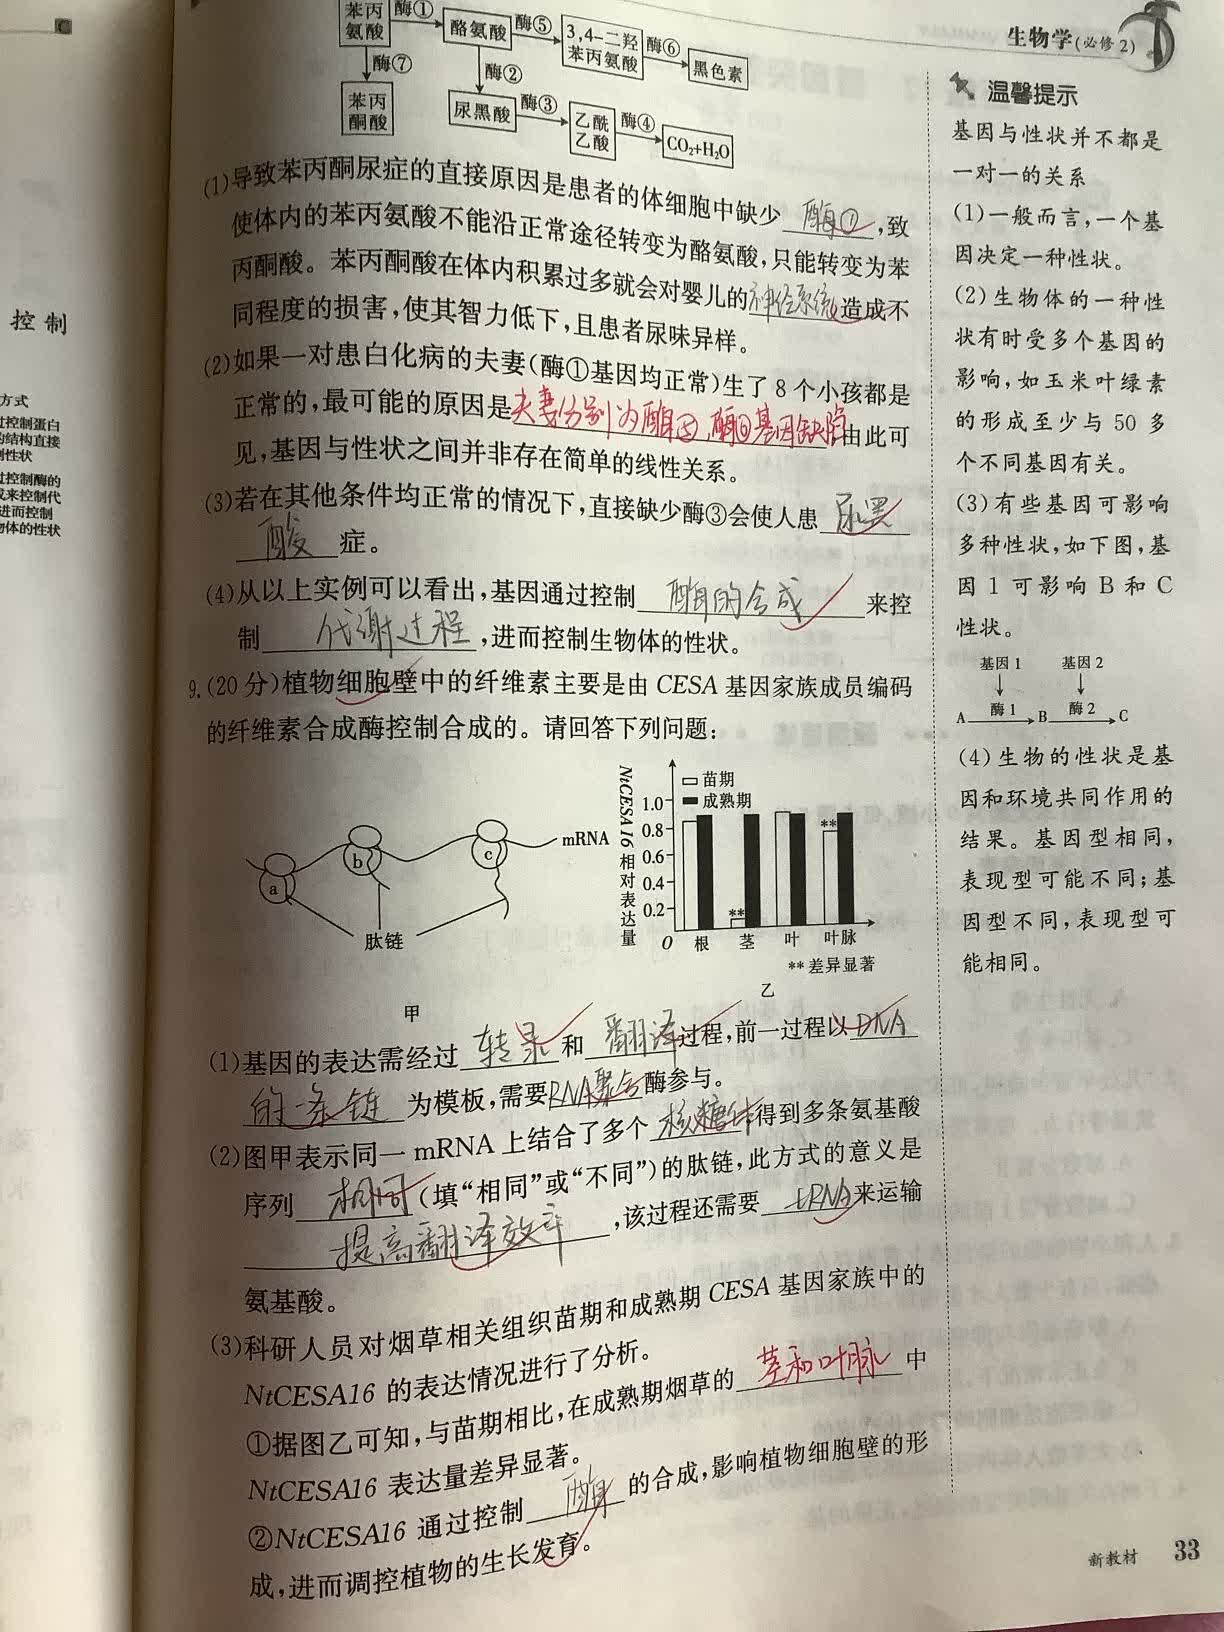 生物学(必修2)
苯丙氨酸 酶① 酪氨酸 酶⑤ 3,4-二羟苯丙氨酸 酶⑥ 黑色素
酶⑦ 酶②
苯丙酮酸 尿黑酸 酶③ 乙酰乙酸 酶④ CO₂+H₂O
(1)导致苯丙酮尿症的直接原因是患者的体细胞中缺少 酶① ,致
使体内的苯丙氨酸不能沿正常途径转变为酪氨酸,只能转变为苯
丙酮酸。苯丙酮酸在体内积累过多就会对婴儿的神经系统造成不
同程度的损害,使其智力低下,且患者尿味异样。
(2)如果一对患白化病的夫妻(酶①基因均正常)生了8个小孩都是
正常的,最可能的原因是夫妻分别为酶⑤,酶⑥基因缺陷由此可
见,基因与性状之间并非存在简单的线性关系。
(3)若在其他条件均正常的情况下,直接缺少酶③会使人患 尿黑
酸 症。
(4)从以上实例可以看出,基因通过控制 酶的合成 来控
制 代谢过程 ,进而控制生物体的性状。
9.(20分)植物细胞壁中的纤维素主要是由CESA基因家族成员编码
的纤维素合成酶控制合成的。请回答下列问题:
a b c mRNA
肽链
甲
NtCESA16相对表达量
苗期
成熟期
1.0
0.8
0.6
0.4
0.2
O 根 茎 叶 叶脉
** **
**差异显著
乙
(1)基因的表达需经过 转录 和 翻译 过程,前一过程以 DNA
的一条链 为模板,需要RNA聚合酶参与。
(2)图甲表示同一mRNA上结合了多个 核糖体 得到多条氨基酸
序列 相同 (填“相同”或“不同”)的肽链,此方式的意义是
提高翻译效率 ,该过程还需要 tRNA 来运输
氨基酸。
(3)科研人员对烟草相关组织苗期和成熟期CESA基因家族中的
NtCESA16的表达情况进行了分析。
①据图乙可知,与苗期相比,在成熟期烟草的 茎和叶脉 中
NtCESA16表达量差异显著。
②NtCESA16通过控制 酶 的合成,影响植物细胞壁的形
成,进而调控植物的生长发育。
温馨提示
基因与性状并不都是
一对一的关系
(1)一般而言,一个基
因决定一种性状。
(2)生物体的一种性
状有时受多个基因的
影响,如玉米叶绿素
的形成至少与50多
个不同基因有关。
(3)有些基因可影响
多种性状,如下图,基
因1可影响B和C
性状。
基因1 基因2
A 酶1 B 酶2 C
(4)生物的性状是基
因和环境共同作用的
结果。基因型相同,
表现型可能不同;基
因型不同,表现型可
能相同。
新教材 33
控制
方式
过控制蛋白
的结构直接
制性状
过控制酶的
成来控制代
进而控制
物体的性状